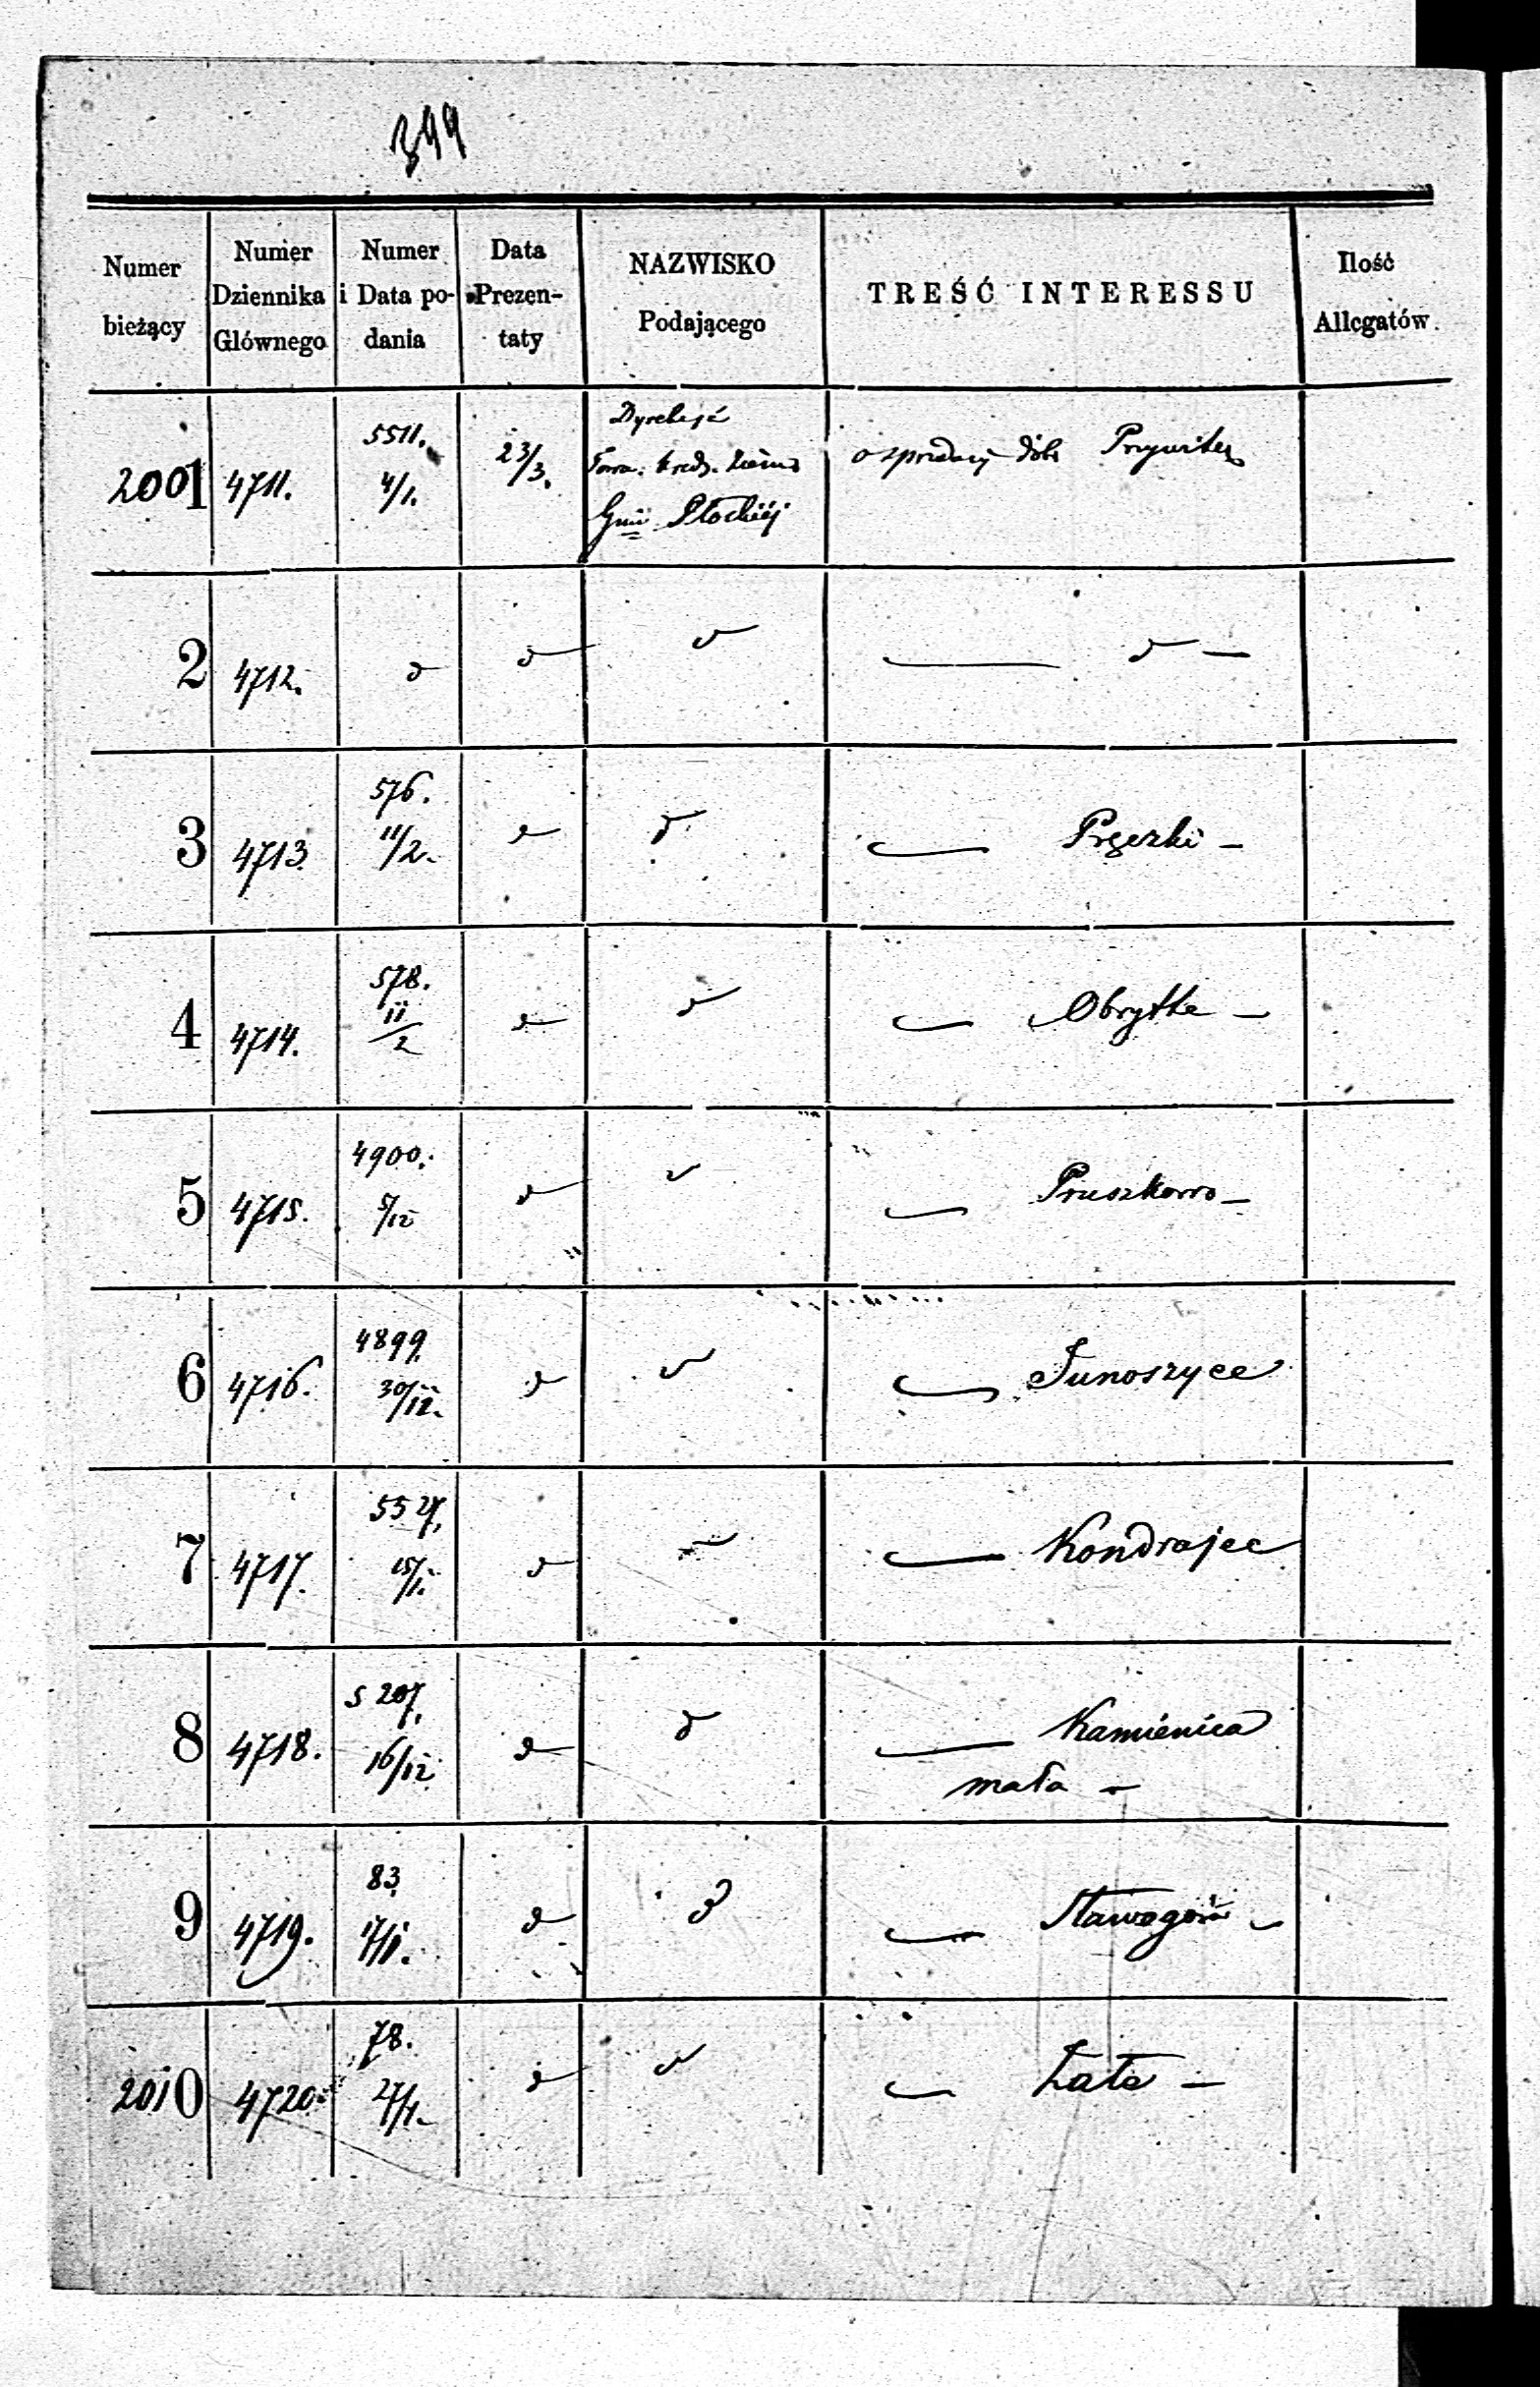 399
Numer bieżący
Numer Dziennika Głównego
Numer i Data podania
Data Prezentaty
NAZWISKO Podającego
TREŚĆ INTERESSU
Ilość Allegatów
2001 4711. 5511. 4/1. 23/3. Dyrekcja Towa. kredy. Ziems Gub Płockiéj o sprzedaży dóbr
2 4712.
3 4713. 576. 11/2. Pręczki –
4 4714. 578. 11/2 Obrytke –
5 4715. 4900. 5/12 Pruszkowo –
6 4716. 4899. 30/12. Junoszyce
7 4717. 5527. 15/1. Kondrajec
8 4718. 5207. 16/12 Kamienica
mała –
9 4719. 83. Sławogóra –
2010 4720. 78. 27/1. –